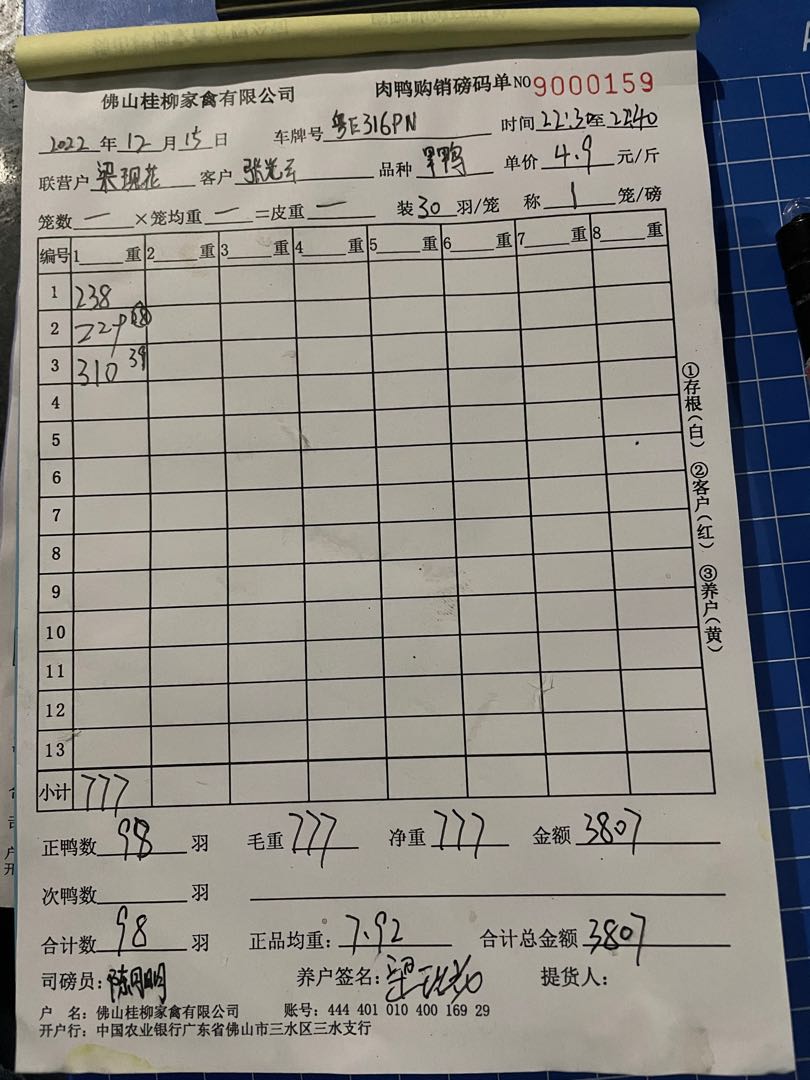 佛山桂柳家禽有限公司 肉鸭购销磅码单 NO 9000159
2022 年 12 月 15 日 车牌号 粤E316PN 时间 22:30至 2240
联营户 梁现花 客户 张光云 品种 单价 4.9 元/斤
笼数 一 ×笼均重 一 =皮重 一 装 30 羽/笼 称 1 笼/磅
编号 1 重 2 重 3 重 4 重 5 重 6 重 7 重 8 重
1 238
2 229
3 310 39
4
5
6
7
8
9
10
11
12
13
小计 777
①存根(白) ②客户(红) ③养户(黄)
正鸭数 98 羽 毛重 777 净重 777 金额 3807
次鸭数 羽
合计数 98 羽 正品均重: 7.92 合计总金额 3807
司磅员: 陈明 养户签名: 梁现花 提货人:
户 名: 佛山桂柳家禽有限公司 账号: 444 401 010 400 169 29
开户行: 中国农业银行广东省佛山市三水区三水支行